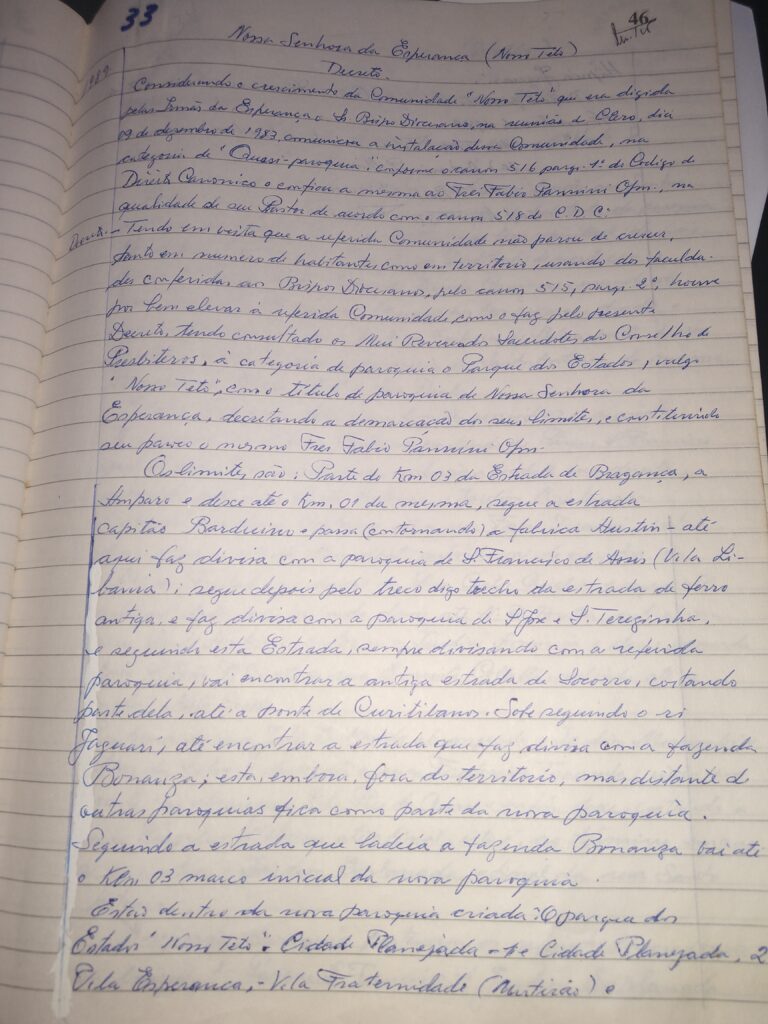 33
46
Nossa Senhora da Esperança (Nosso Teto)
Decreto.
1989
Considerando o crescimento da Comunidade "Nosso Teto" que era dirigida
pelas Irmãs da Esperança o Sr Bispo Diocesano, na reunião do Clero, dia
09 de dezembro de 1983 comunicou a instalação dessa Comunidade, na
categoria de "Quasi-paroquia", conforme o canon 516 parg. 1º do Codigo de
Direito Canonico e confiou a mesma ao Frei Fabio Pannini Ofm., na
qualidade de seu Pastor de acordo com o canon 518 do C.D.C.
Decreto. - Tendo em vista que a referida Comunidade não parou de crescer,
tanto em numero de habitantes como em territorio, usando das faculda-
des conferidas aos Bispos Diocesanos, pelo canon 515, parg. 2º, houve
por bem elevar à referida Comunidade, como o faz pelo presente
Decreto, tendo consultado os Mui Reverendos Sacerdotes do Conselho de
Presbiteros, à categoria de paroquia o Parque dos Estados, vulgo
"Nosso Teto", com o titulo de paroquia de Nossa Senhora da
Esperança, decretando a demarcação dos seus limites, e constituindo
seu paroco o mesmo Frei Fabio Pannini Ofm.
Os limites são: Parte do Km 03 da Estrada de Bragança, a
Amparo e desce até o Km. 01 da mesma, segue a estrada
capitão Barduino e passa (contornando) a fabrica Austin - até
aqui faz divisa com a paroquia de S. Francisco de Assis (Vila Li-
bania); segue depois pelo treco digo trecho da estrada de ferro
antiga, e faz divisa com a paroquia de S. José e S. Terezinha,
e seguindo esta Estrada, sempre divisando com a referida
paroquia, vai encontrar a antiga estrada de Socorro, costando
parte dela, até a ponte de Curitibanos. Sobe seguindo o ri
Jaguarí, até encontrar a estrada que faz divisa com a fazenda
Bonanza; esta, embora, fora do territorio, mas distante de
outras paroquias fica como parte da nova paroquia.
Seguindo a estrada que ladeia a fazenda Bonanza vai até
o Km 03 marco inicial da nova paroquia.
Estão dentro da nova paroquia criada: O parque dos
Estados "Nosso Teto". Cidade Planejada - 1 e Cidade Planejada, 2
Vila Esperança, - Vila Fraternidade (Mutirão) e